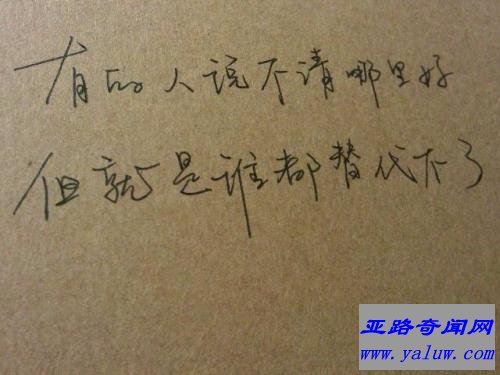 有的人说不清哪里好
但就是谁都替代不了
亚路奇闻网
www.yaluw.com